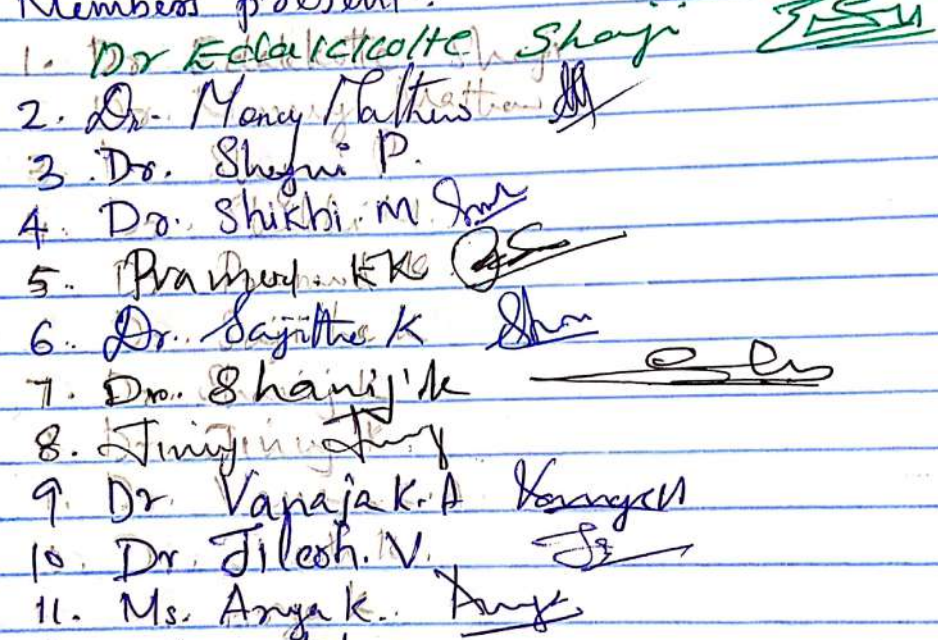 Members present:
1. Dr Edakkotte Shaji
2. Dr. Moncy Mathew
3. Dr. Shegni P.
4. Dr. Shikhi. M
5. KK
6. Dr. Sajitha K
7. Dr. Shanij k
8. Jiny
9. Dr. Vanaja K. A
10. Dr Jilesh. V.
11. Ms. Arya K.